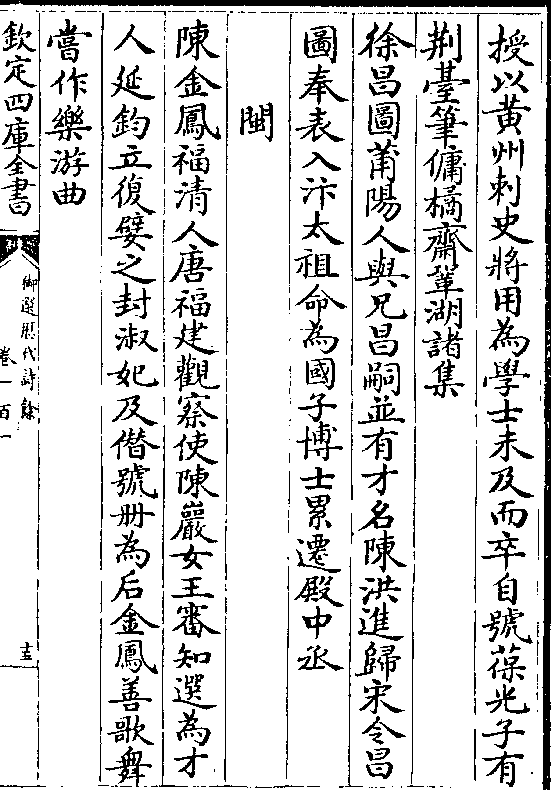 授以黃州刺史將用為學士未及而卒自號葆光子有
荆臺筆傭橘齋鞏湖諸集
徐昌圖莆陽人與兄昌嗣並有才名陳洪進歸宋令昌
圖奉表入汴太祖命為國子博士累遷殿中丞
閩
陳金鳳福清人唐福建觀察使陳巖女王審知選為才
人延鈞立復嬖之封淑妃及僭號册為后金鳳善歌舞
嘗作樂游曲
欽定四庫全書
御選歴代詩餘
卷一百一